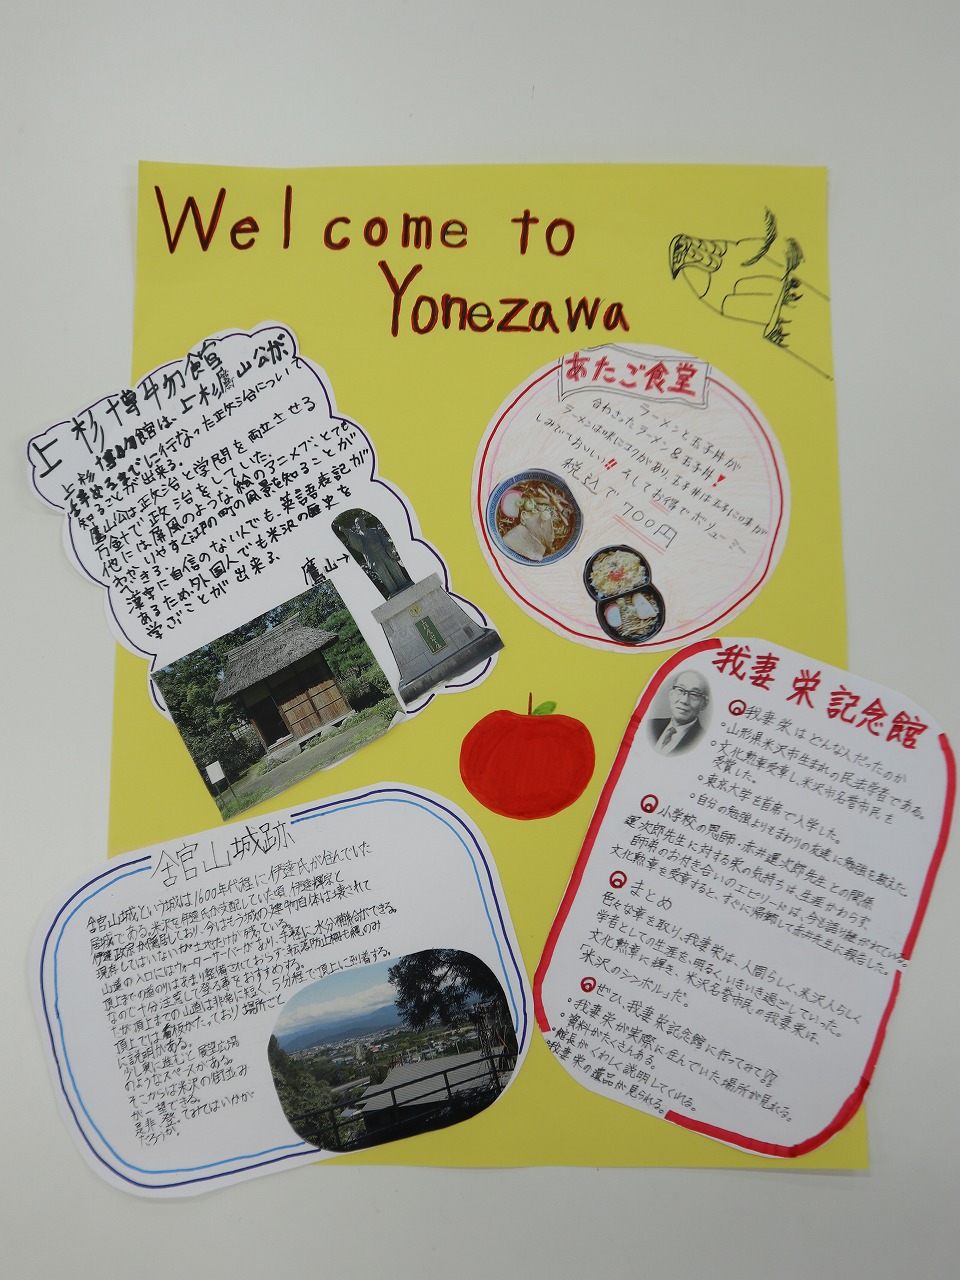 Welcome to
Yonezawa
上杉博物館
上杉博物館は、上杉鷹山公が
亡くなるまでに行なった政治について
知ることが出来る。
鷹山公は政治と学問を両立させる
方針で政治をしていた。
他には屏風のような絵のアニメで、とても
わかりやすく江戸の町の風景を知ることが
できる。
漢字に自信のない人でも、英語表記が
あるため、外国人でも米沢の歴史を
学ぶことが出来る。
鷹山→
あたご食堂
ラーメンと玉子丼が
合わさったラーメン&玉子丼!
ラーメンは味にコクがあり、玉子丼は玉子に味が
しみていておいしい!!そしてお得でボリューミー
税込で700円
我妻栄記念館
Q我妻栄はどんな人だったのか
・山形県米沢市生まれの民法学者である。
・文化勲章受章し、米沢市名誉市民を
受賞した。
・東京大学を首席で入学した。
・自分の勉強よりもまわりの友達に勉強を教えた。
Q小学校の恩師・赤井運次郎先生との関係
運次郎先生に対する栄の気持ちは、生涯かわらず、
師弟のお付き合いのエピソードは、今も語り継がれている。
文化勲章を受章すると、すぐに帰郷して赤井先生に報告した。
Qまとめ
色々な章を取り、我妻栄は、人間らしく、米沢人らしく
学者としての生涯を、明るく、いきいき過ごしていった。
文化勲章に輝き、米沢名誉市民の我妻栄は、
「米沢のシンボル」だ。
Qぜひ、我妻栄記念館に行ってみて!!
・我妻栄が実際に住んでいた場所が見れる。
・資料がたくさんある。
・館長がくわしく説明してくれる。
・我妻栄の遺品が見られる。
舘山城跡
舘山城という城は1600年代程に伊達氏が住んでいた
居城である。米沢を伊達氏が支配していた頃、伊達輝宗と
伊達政宗が隠居しており、今はもう城の建物自体は壊されて
現存してはいないが土地だけが残っている。
山道の入口にはウォーターサーバーがあり、気軽に水分補給ができる。
頂上までの道のりはあまり整備されておらず、転落防止柵も縄のみ
なので十分注意して登る事をおすすめする。
だが頂上までの山道は非常に短く、5分程で頂上に到着する。
頂上では看板がたっており場所ごと
に説明がある。
少し奥に進むと展望広場
のようなスペースがある。
そこからは米沢の街並み
が一望できる。
是非、登ってみてはいかが
だろうか。